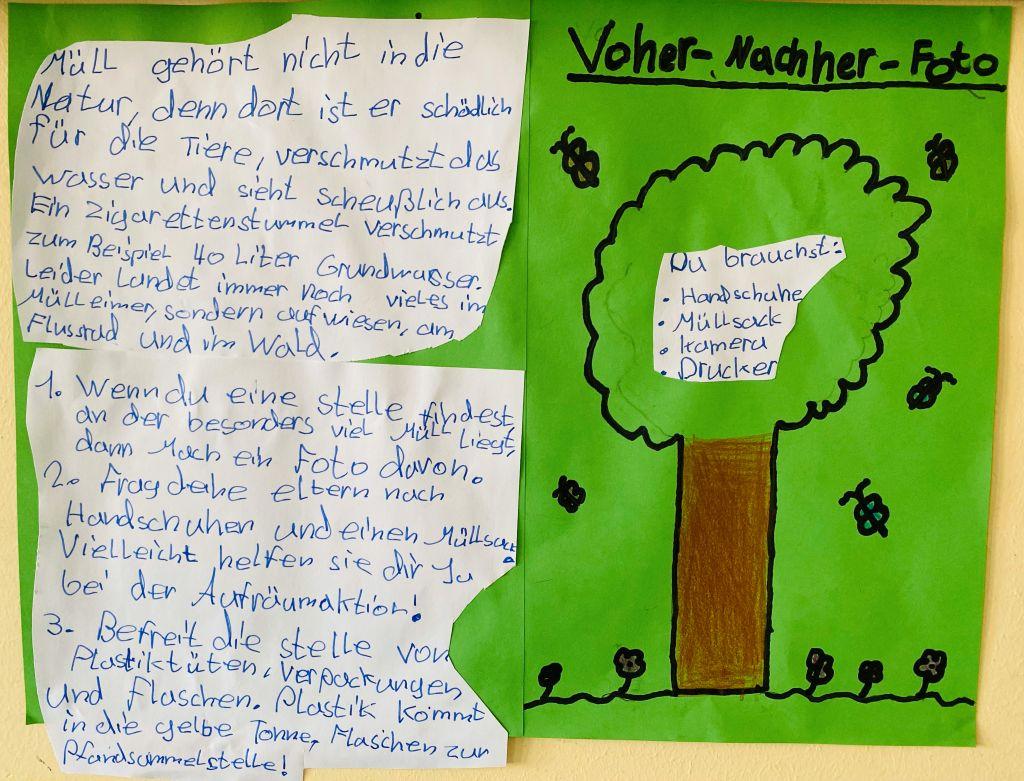 Müll gehört nicht in die
Natur, denn dort ist er schädlich
für die Tiere, verschmutzt das
Wasser und sieht Scheußlich aus.
Ein Zigarettenstummel verschmutzt
zum Beispiel 40 Liter Grundwasser.
Leider Landet immer noch vieles im
Mülleimer, sondern auf wiesen, am
Flussrad und im Wald.
1. Wenn du eine stelle findest,
an der besonders viel Müll liegt,
dann Mach ein Foto davon.
2. Frag deine eltern nach
Handschuhen und einen Müllsack.
Vielleicht helfen sie dir Ja
bei der Aufräumaktion!
3. Befreit die stelle von
Plastiktüten, Verpackungen
und Flaschen. Plastik kommt
in die gelbe Tonne, Flaschen zur
Pfandsammelstelle!
Voher-Nachher-Foto
Du brauchst:
• Handschuhe
• Müllsack
• Kamera
• Drucker